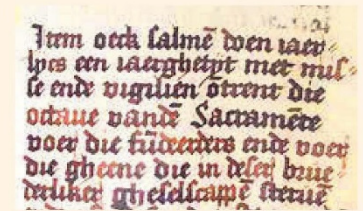 Item oeck salmē doen iaer⸗
lycs een iaerghetyt met mis⸗
se ende vigilien ōtrent die
octaue vandē Sacramēte
voer die fūdeerders ende voer
die gheene die in deser brue⸗
derliker gheselscapē steruē